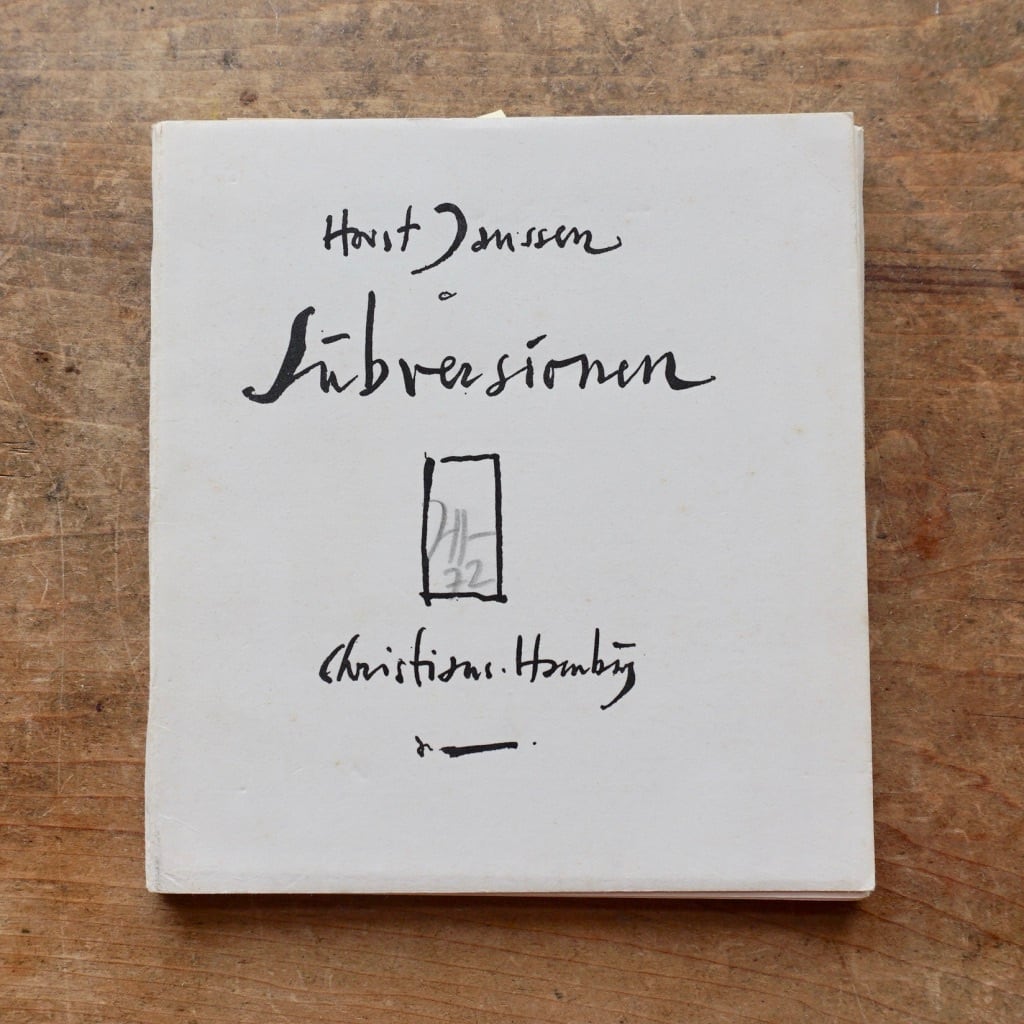 Horst Janssen
Subversionen
72
Christians. Hamburg